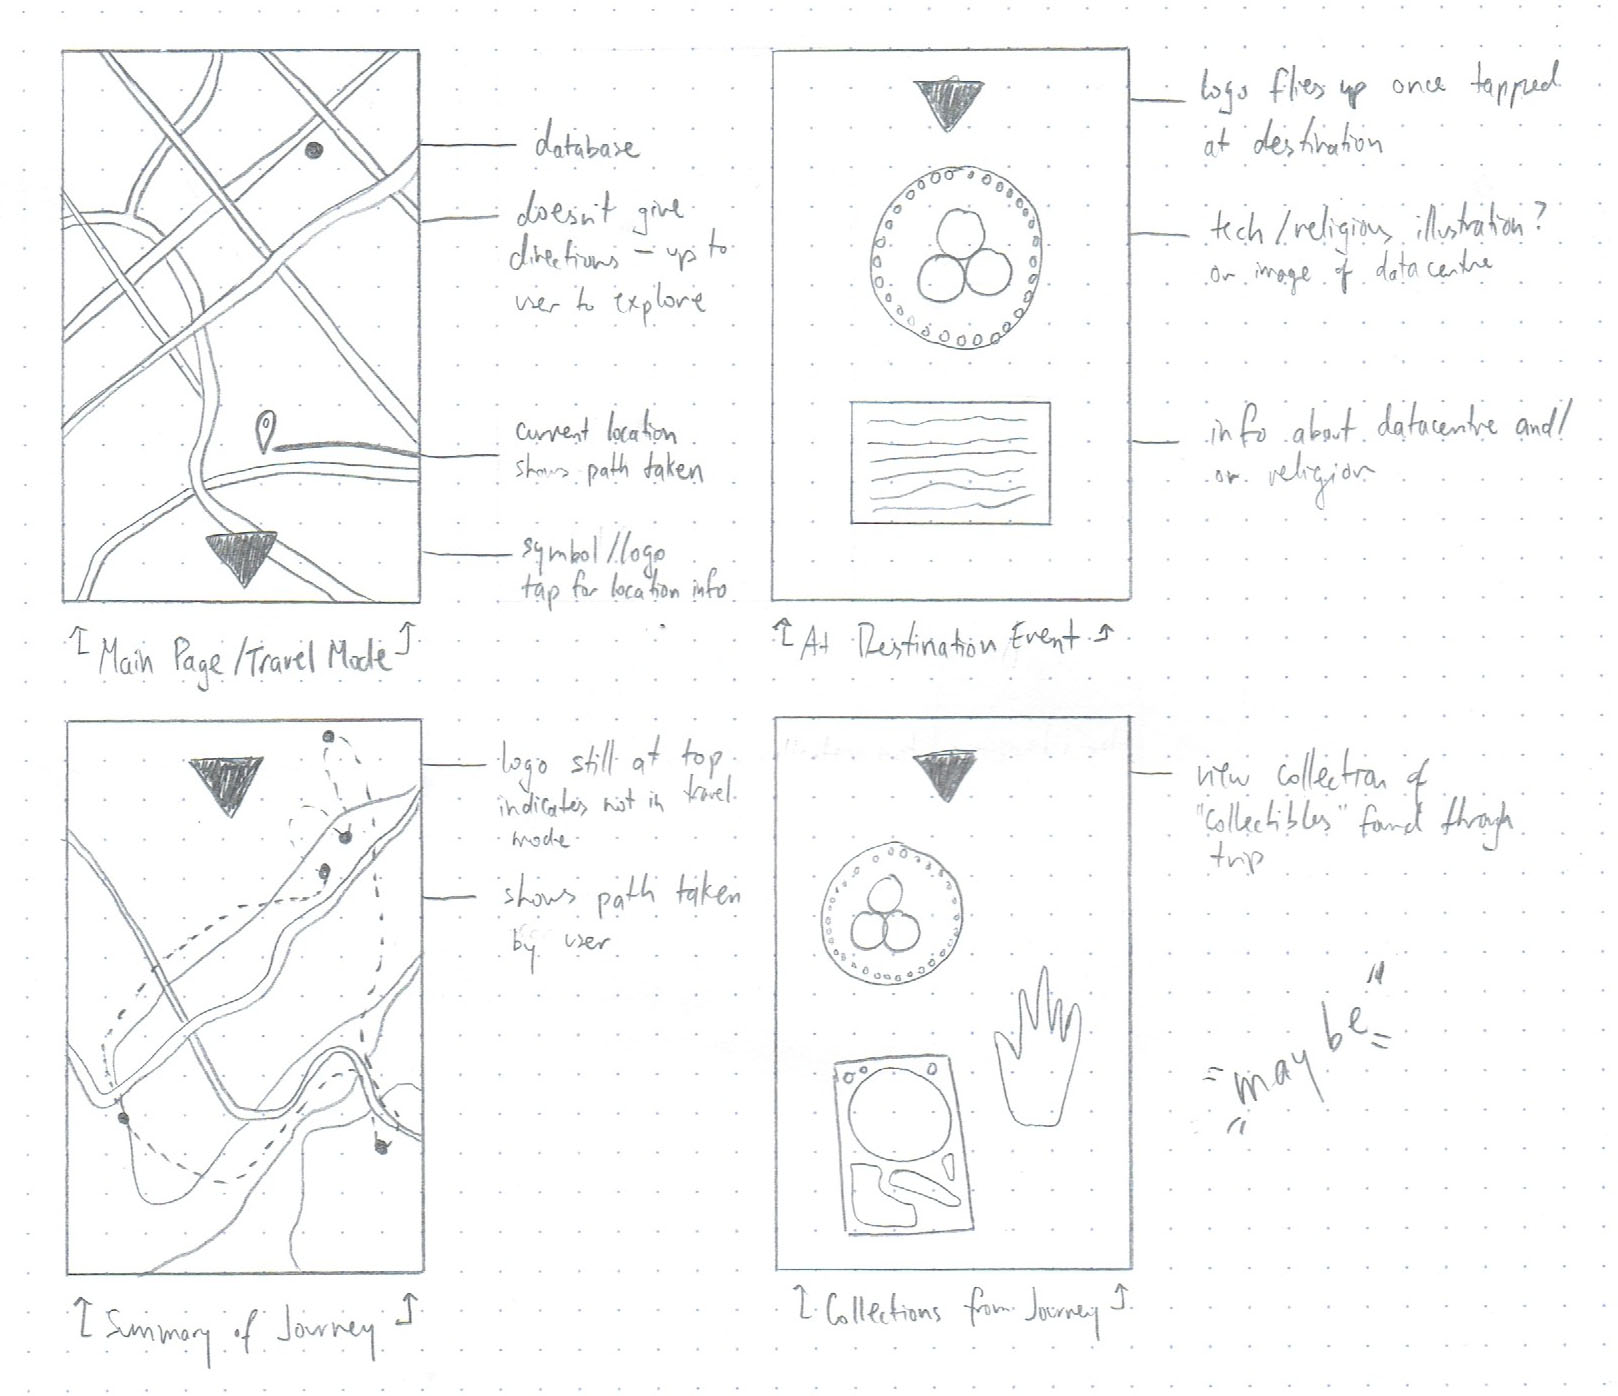 database
doesn't give
directions – up to
user to explore
current location
shows path taken
symbol/logo
tap for location info
Main Page/Travel Mode
logo flies up once tapped
at destination
tech/religious illustration?
or image of datacentre
info about datacentre and/
or religion
At Destination Event
logo still at top
indicates not in travel
mode
shows path taken
by user
Summary of Journey
view collection of
"collectibles" found through
trip
maybe
Collections from Journey